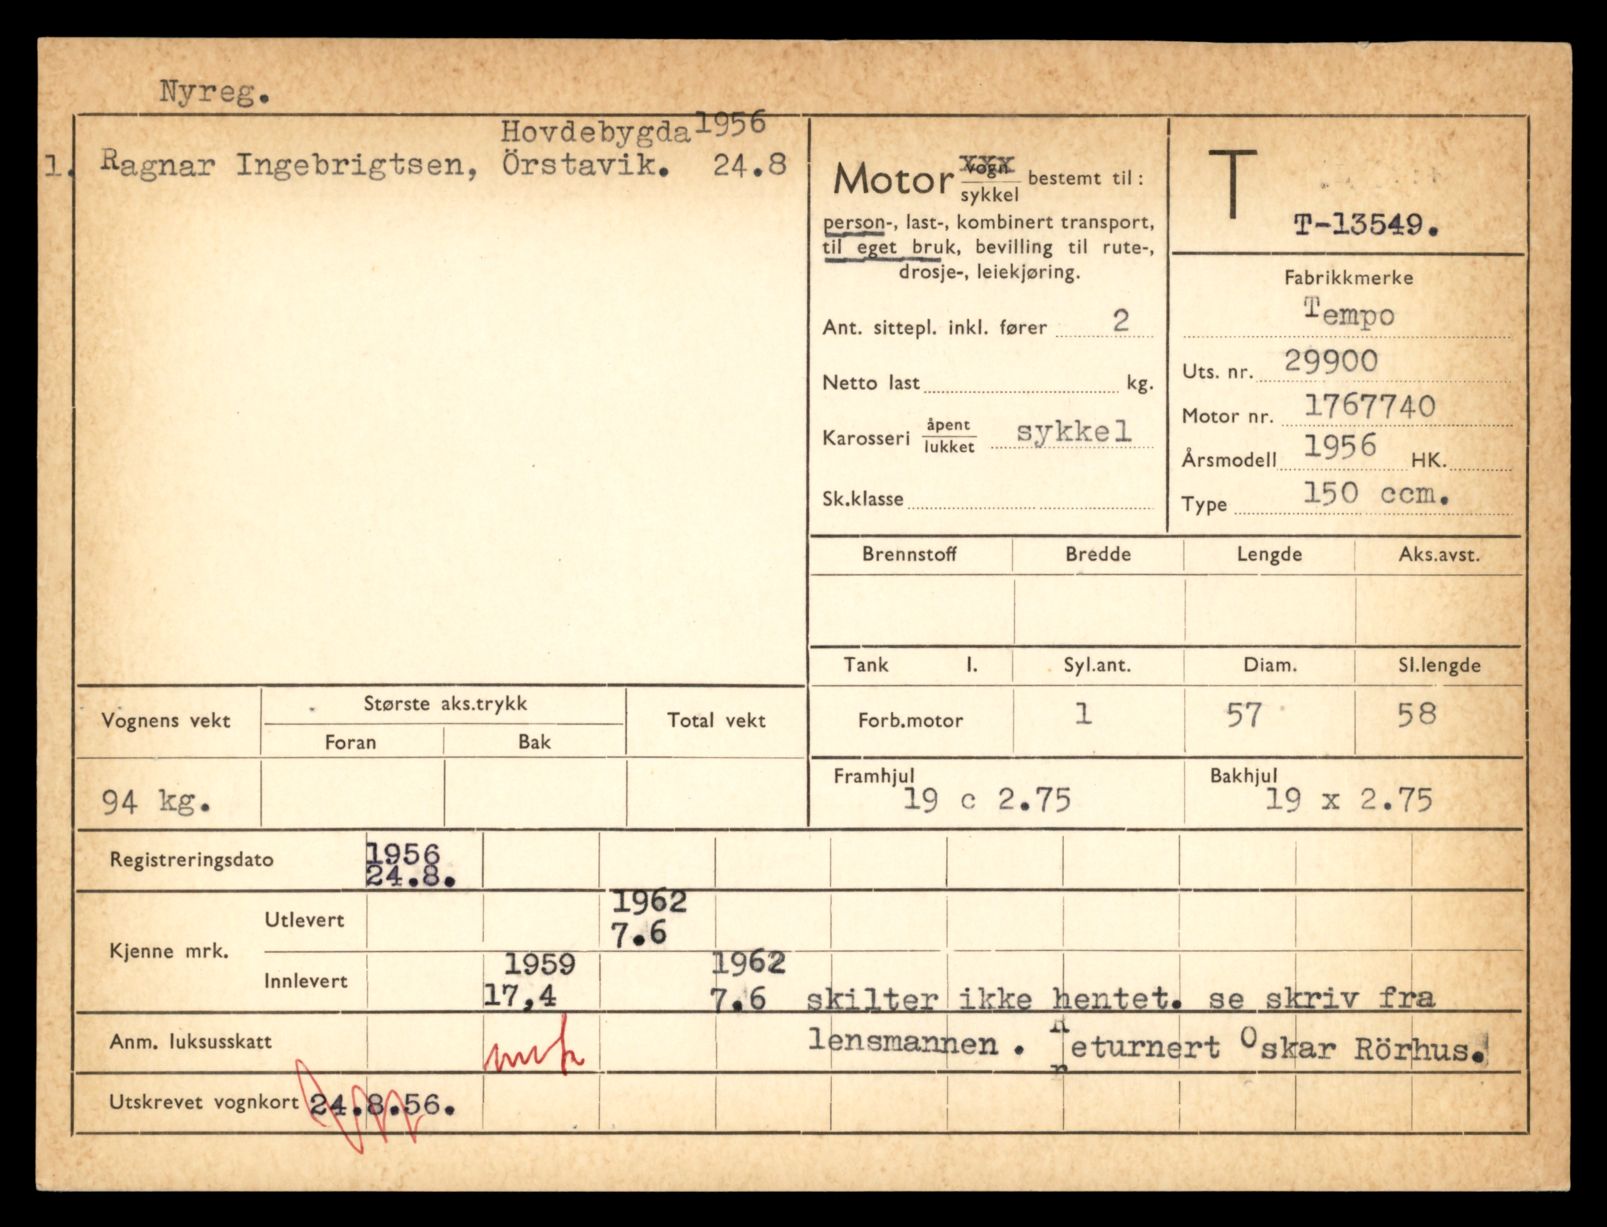 Nyreg.
Hovdebygda 1956
1. Ragnar Ingebrigtsen, Örstavik. 24.8
Motor vogn xxx
sykkel bestemt til:
person-, last-, kombinert transport,
til eget bruk, bevilling til rute-,
drosje-, leiekjøring.
Ant. sittepl. inkl. fører 2
Netto last kg.
Karosseri åpent
lukket sykkel
Sk.klasse
T
T-13549.
Fabrikkmerke
Tempo
Uts. nr. 29900
Motor nr. 1767740
Årsmodell 1956 HK.
Type 150 ccm.
Brennstoff Bredde Lengde Aks.avst.
Tank l. Syl.ant. Diam. Sl.lengde
Forb.motor 1 57 58
Framhjul Bakhjul
19 c 2.75 19 x 2.75
Vognens vekt Største aks.trykk Total vekt
Foran Bak
94 kg.
Registreringsdato 1956
24.8.
Kjenne mrk.
Utlevert 1962
7.6
Innlevert 1959 1962
17,4 7.6 skilter ikke hentet. se skriv fra
Anm. luksusskatt lensmannen. Returnert Oskar Rörhus.
Utskrevet vognkort 24.8.56.